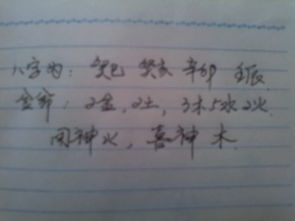 八字为：癸巳 癸亥 辛卯 壬辰
含藏：2金，2土，3木5水2火
用神火，喜神木